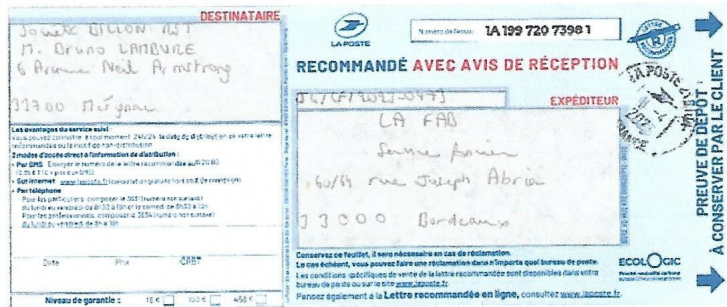 DESTINATAIRE
Société BILLON
M. Bruno LAMBURE
6 Avenue Neil Armstrong
33700 Mérignac
Les avantages du service suivi :
Vous pouvez connaître, à tout moment, 24h/24, la date de distribution de votre lettre
recommandée ou le motif de non-distribution.
3 modes d'accès direct à l'information de distribution :
• Par SMS : Envoyer le numéro de la lettre recommandée au 6 20 80
(0,35 € TTC + prix d'un SMS)
• Sur internet : www.laposte.fr
• Par téléphone :
- Pour les particuliers, composer le 3631 (numéro non surtaxé)
du lundi au vendredi de 8h30 à 19h et le samedi de 8h30 à 13h
- Pour les professionnels, composer le 3634 (numéro non surtaxé)
du lundi au vendredi de 8h à 19h
Date Prix CRBT
Niveau de garantie : 16 € 153 € 458 €
LA POSTE
Numéro de l'envoi : 1A 199 720 7398 1
LETTRE
RECOMMANDÉE
R
RECOMMANDÉ AVEC AVIS DE RÉCEPTION
EXPÉDITEUR
LA FAB
60/64 rue Joseph Abria
33000 Bordeaux
LA POSTE
FRANCE
Conservez ce feuillet, il sera nécessaire en cas de réclamation.
Le cas échéant, vous pouvez faire une réclamation dans n'importe quel bureau de poste.
Les conditions spécifiques de vente de la lettre recommandée sont disponibles dans votre
bureau de poste ou sur le site www.laposte.fr
Pensez également à la Lettre recommandée en ligne, consultez www.laposte.fr
ECOLOGIC
PREUVE DE DÉPÔT
À CONSERVER PAR LE CLIENT